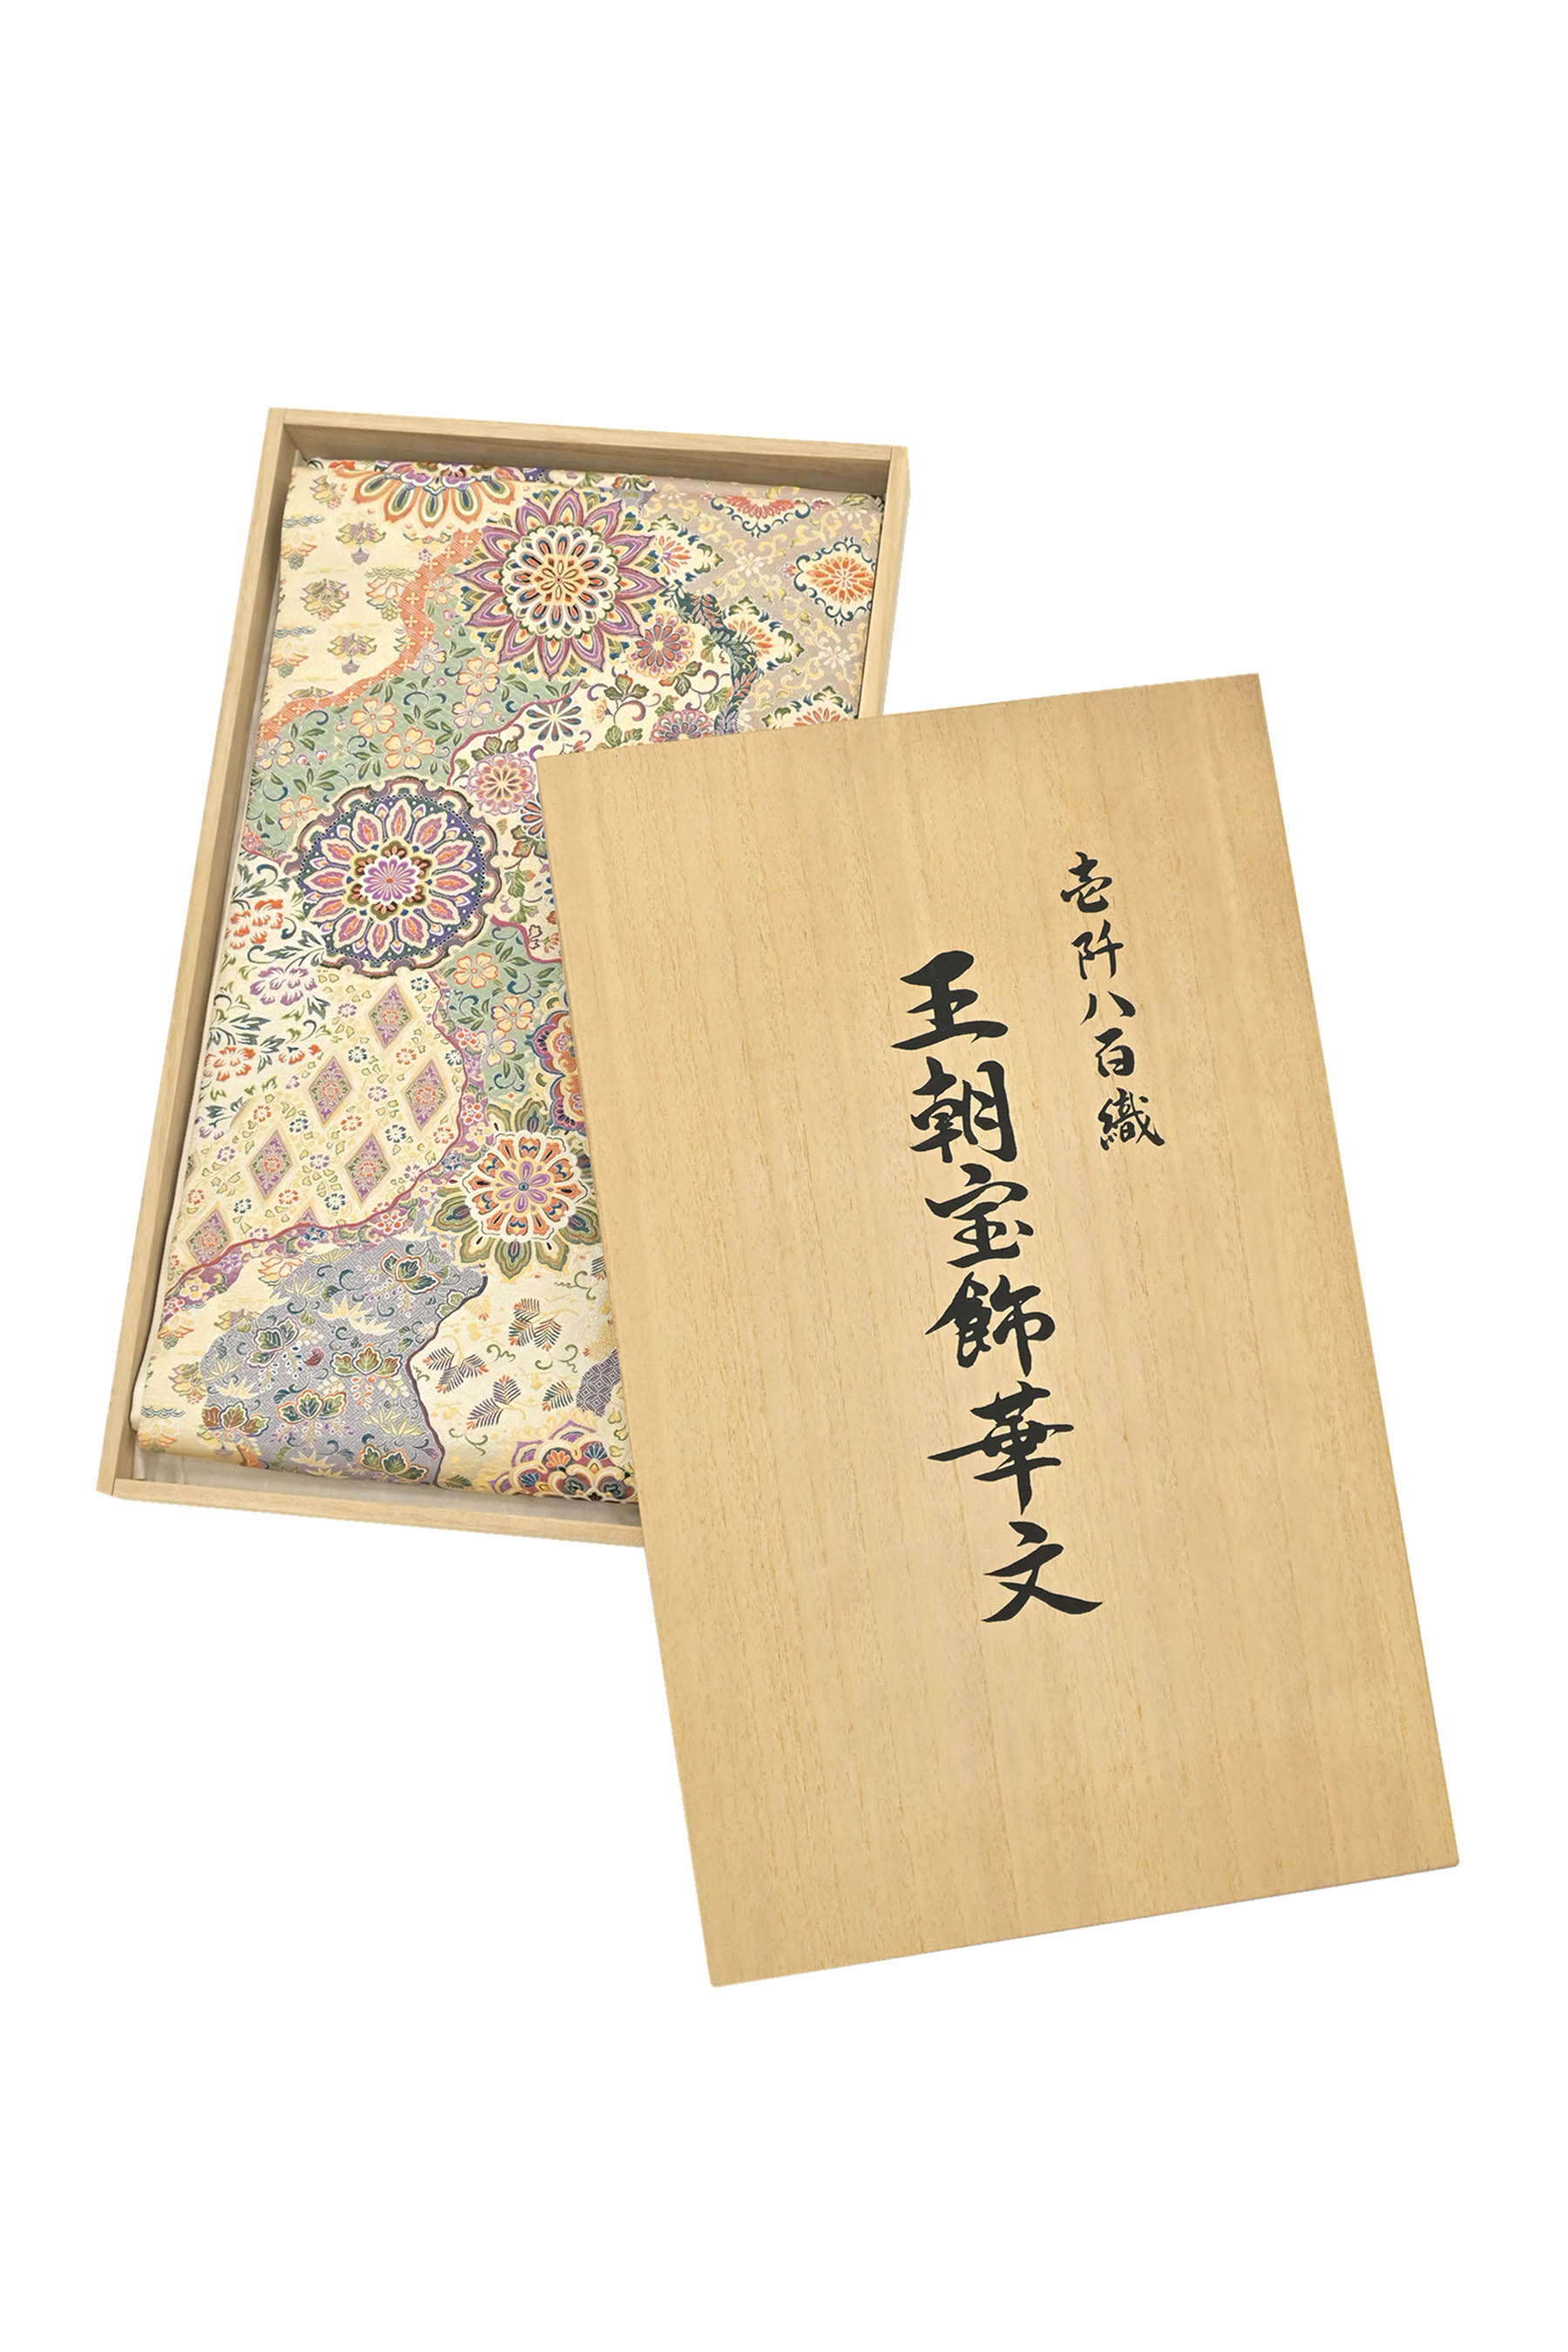 壱阡八百織
王朝宝飾華文